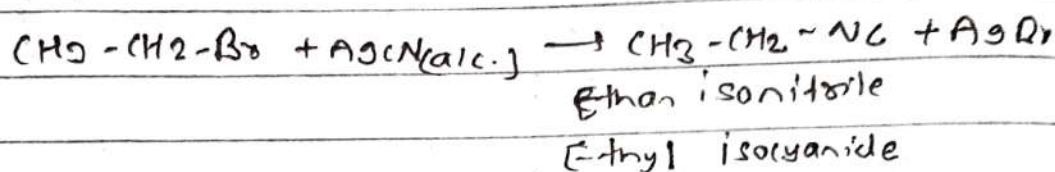 CH3-CH2-Br + AgCN(alc.) → CH3-CH2-NC + AgBr
Ethan isonitrile
Ethyl isocyanide